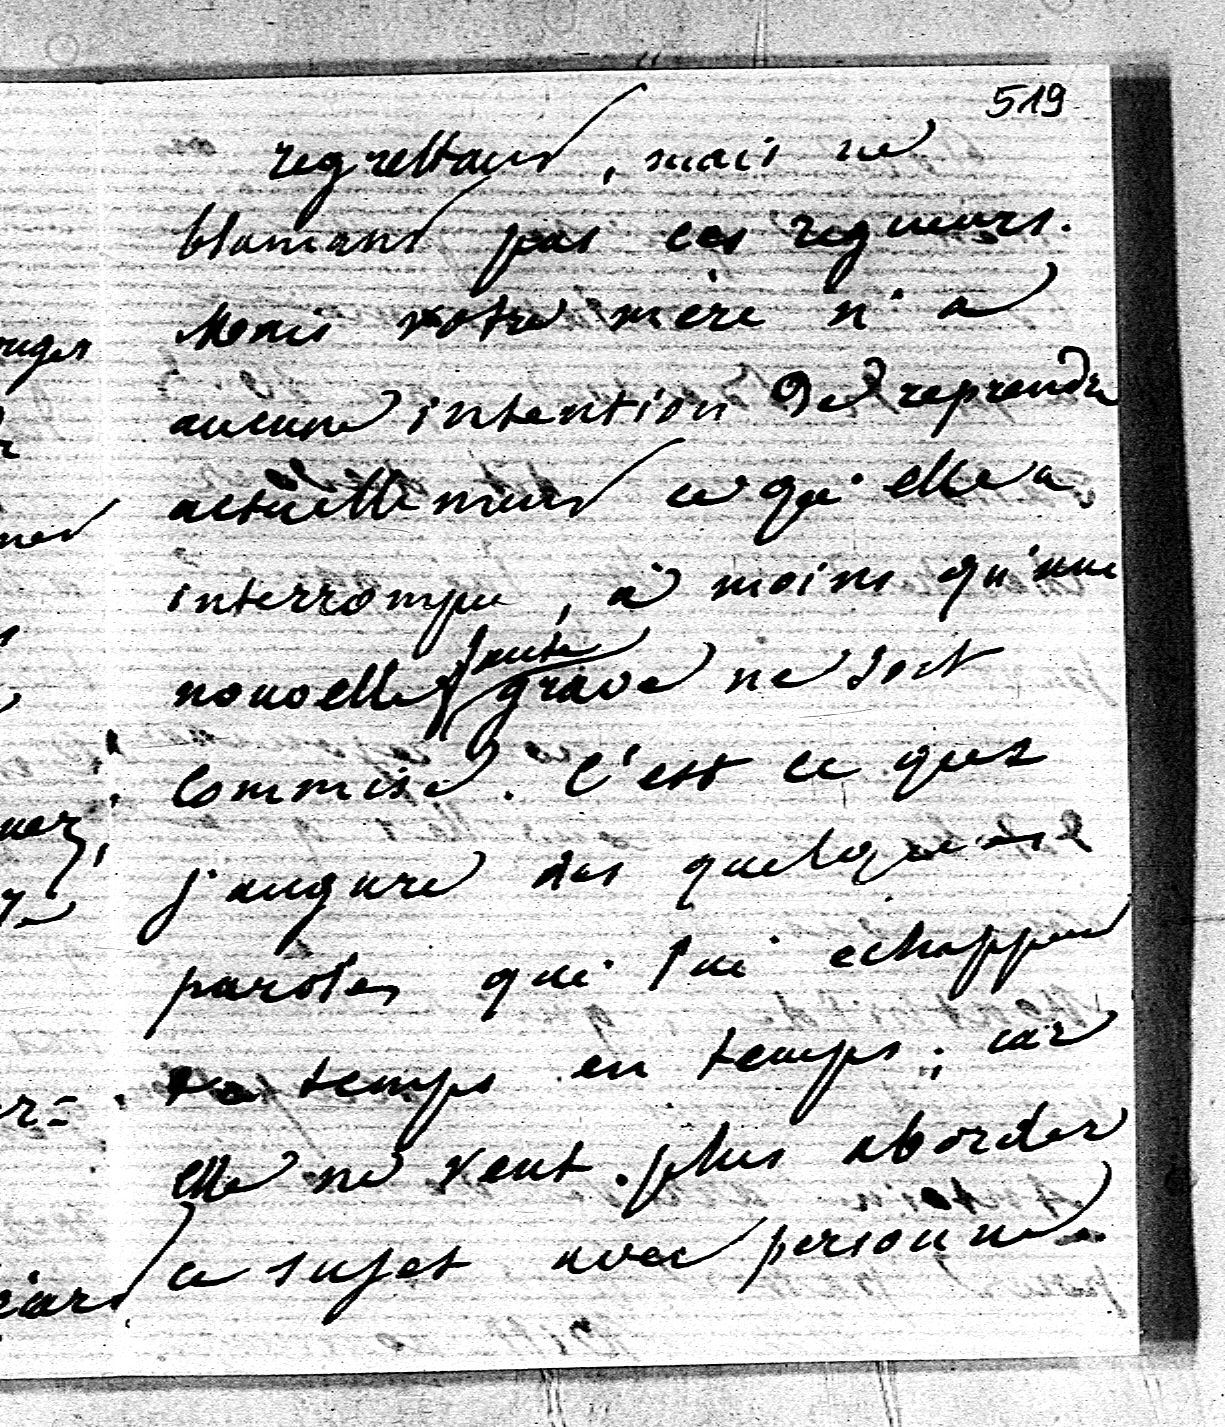 519
regrettant, mais ne
blamant pas ces rigueurs.
Mais votre mère n'a
aucune intention de reprendre
actuellement ce qu'elle a
interrompu, à moins qu'une
faute
nouvelle grave ne soit
commise. C'est ce que
j'augure des quelques
paroles qui lui echappent
de temps en temps; car
elle ne veut plus aborder
ce sujet avec personne.